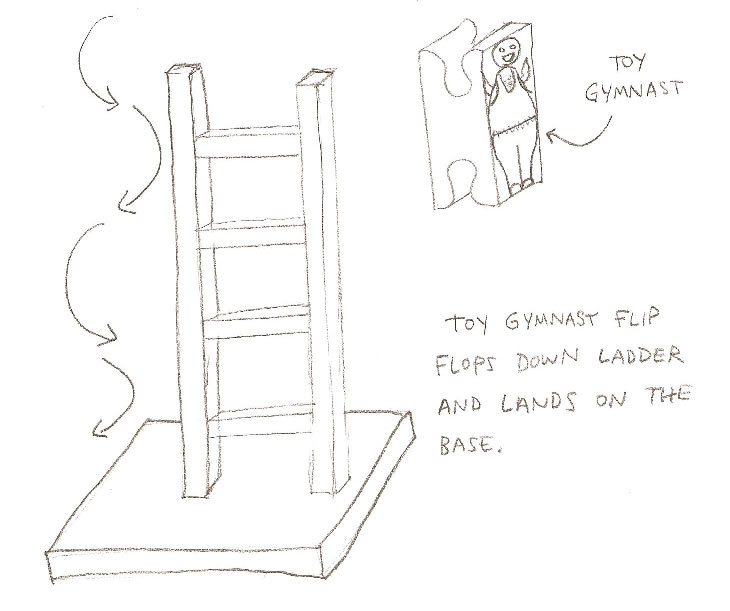 TOY
GYMNAST
TOY GYMNAST FLIP
FLOPS DOWN LADDER
AND LANDS ON THE
BASE.